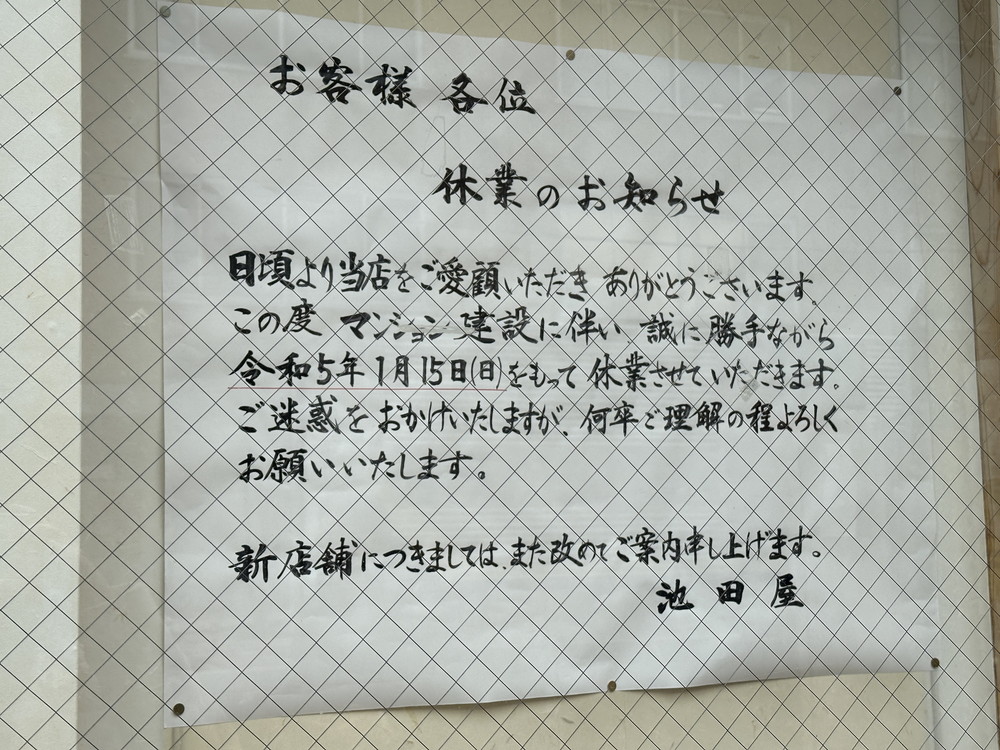 お客様 各位
休業のお知らせ
日頃より当店をご愛顧いただき ありがとうございます。
この度 マンション建設に伴い 誠に勝手ながら
令和5年1月15日(日)をもって 休業させていただきます。
ご迷惑をおかけいたしますが、何卒ご理解の程よろしく
お願いいたします。
新店舗につきましては、また改めてご案内申し上げます。
池田屋